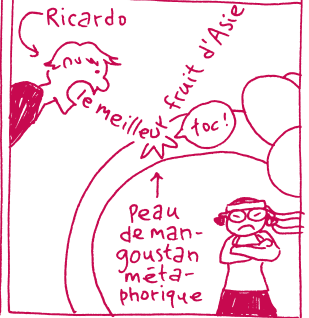 Ricardo
le meilleur fruit d'Asie
toc!
Peau
de man-
goustan
méta-
phorique